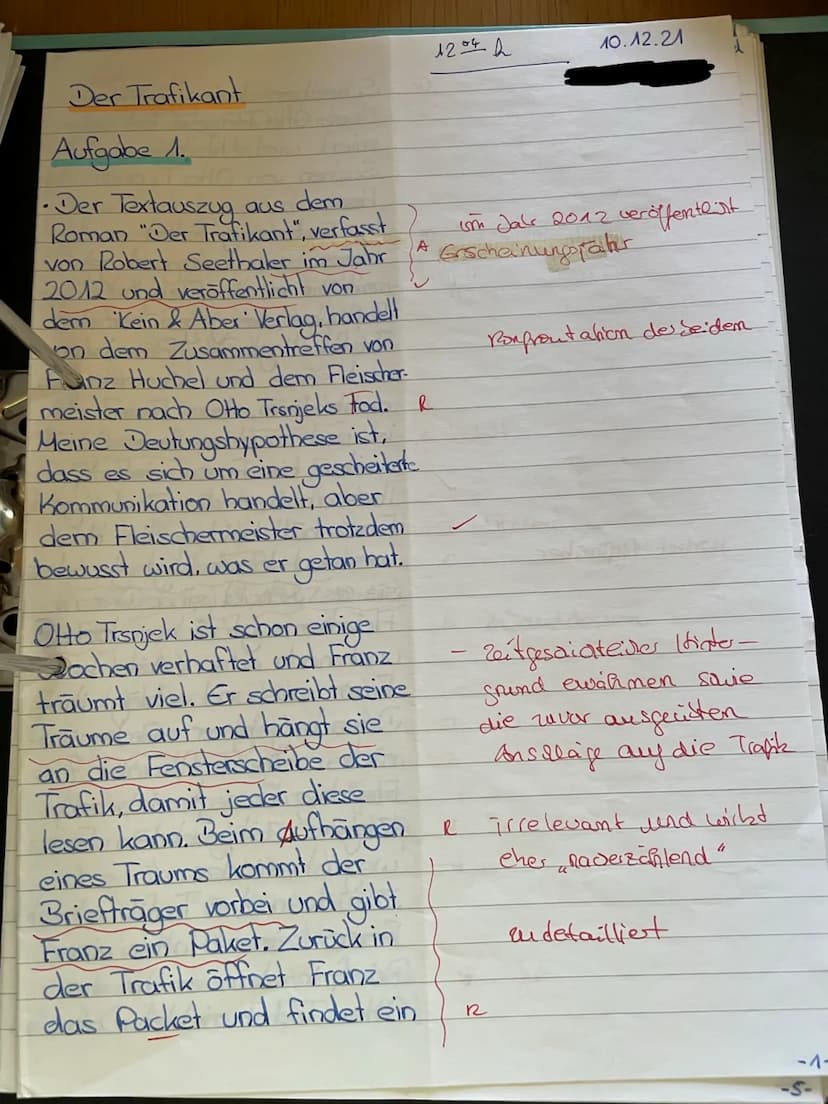 12 04 h
10.12.21
Der Trafikant
Aufgabe 1.
· Der Textauszug aus dem
Roman "Der Trafikant", verfasst
von Robert Seethaler im Jahr
2012 und veröffentlicht von
dem 'Kein & Aber' Verlag, handelt
von dem Zusammentreffen von
Franz Huchel und dem Fleischer-
meister nach Otto Trsnjeks tod.
Meine Deutungshypothese ist,
dass es sich um eine gescheiterte
Kommunikation handelt, aber
dem Fleischermeister trotzdem
bewusst wird, was er getan hat.
Otto Trsnjek ist schon einige
Wochen verhaftet und Franz
träumt viel. Er schreibt seine
Träume auf und hängt sie
an die Fensterscheibe der
Trafik, damit jeder diese
lesen kann. Beim Aufhängen
eines Traums kommt der
Briefträger vorbei und gibt
Franz ein Paket. Zurück in
der Trafik öffnet Franz
das Packet und findet ein
im Jahr 2012 veröffentlicht
A Erscheinungsjahr
Konfrontation der beiden
R
- zeitgeschichtlicher Hinter-
grund erwähnen sowie
die zuvor ausgeübten
Anschläge auf die Trafik
R irrelevant und wirkt
eher „nacherzählend"
zu detailliert
R
-1-
-5-